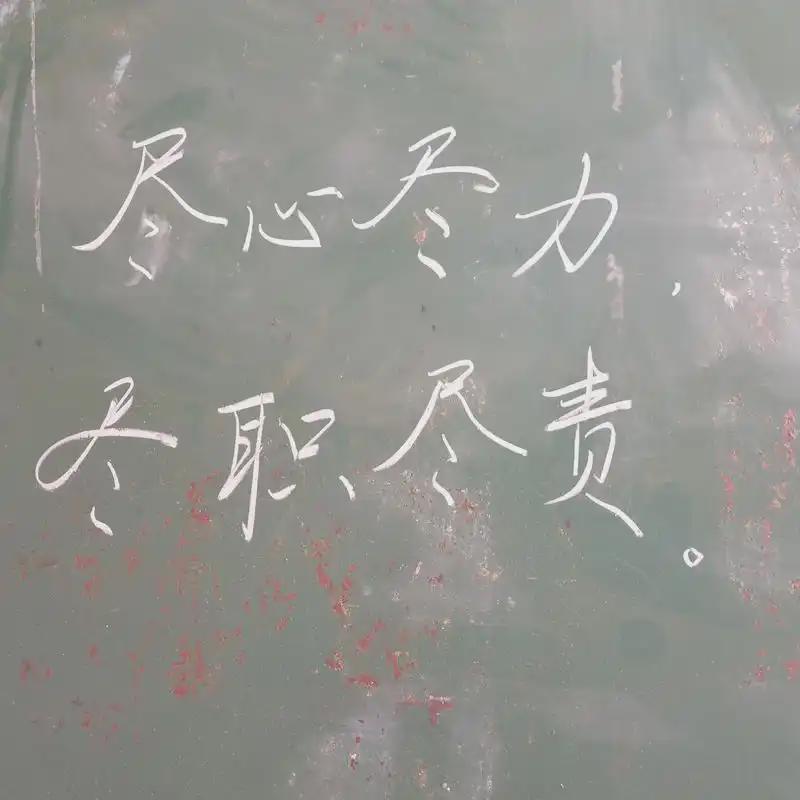 尽心尽力，
尽职尽责。